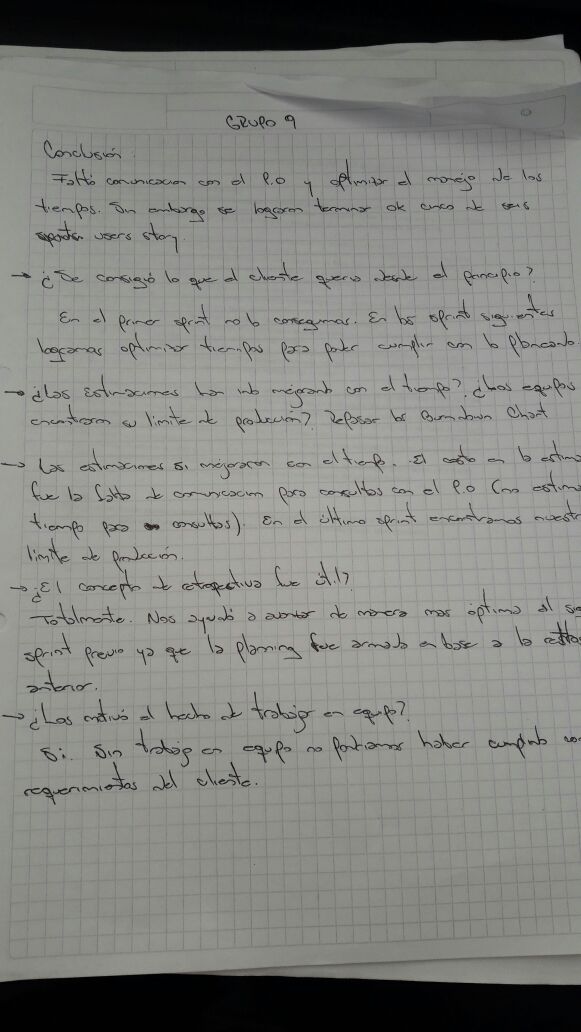 GRUPO 9
Conclusión.
Faltó comunicacion con el P.O y optimizar el manejo de los
tiempos. Sin embargo se lograron terminar ok cinco de seis
users story.
→ ¿Se consiguió lo que el cliente queria desde el principio?
En el primer sprint no lo conseguimos. En los sprint siguientes
logramos optimizar tiempos para poder cumplir con lo planeado.
→ ¿Las estimaciones han ido mejorando con el tiempo? ¿Los equipos
encontraron su limite de produccion? Repasar los Burndown Chart
→ Las estimaciones si mejoraron con el tiempo. El en la estima
fue la falta de comunicacion para consultas con el P.O (no estima
tiempo para consultas). En el último sprint encontramos nuestro
limite de produccion.
→ ¿El concepto de retrospectiva fue útil?
Totalmente. Nos ayudó a de manera mas óptima el
sprint previo ya que la planning fue armada en base a la
anterior.
→ ¿Los motivó el hecho de trabajar en equipo?
Si. Sin trabajo en equipo no podriamos haber cumplido con
requerimientos del cliente.